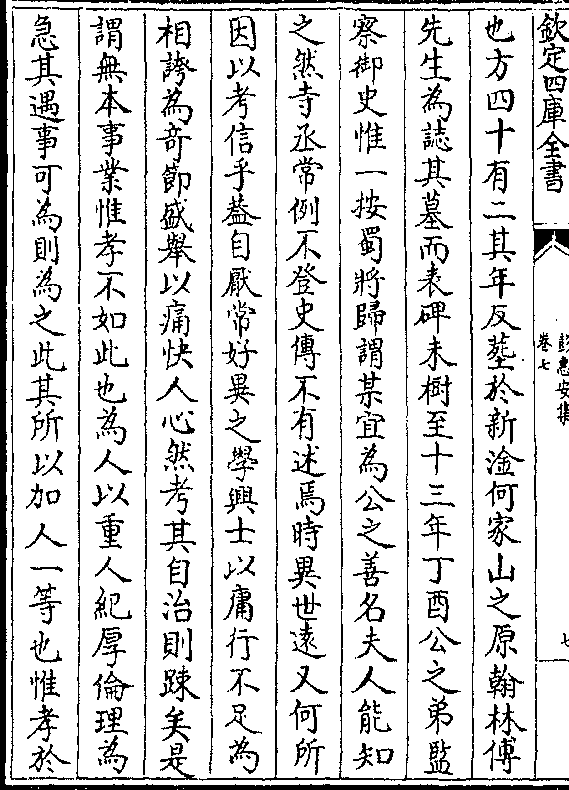 欽定四庫全書
彭惠安集
卷七
七
也方四十有二其年反塟於新淦何家山之原翰林傅
先生為誌其墓而表碑未樹至十三年丁酉公之弟監
察御史惟一按蜀將歸謂某宜為公之善名夫人能知
之然寺丞常例不登史傳不有述焉時異世遠又何所
因以考信乎葢自厭常好異之學興士以庸行不足為
相誇為竒節盛舉以痛快人心然考其自治則踈矣是
謂無本事業惟孝不如此也為人以重人紀厚倫理為
急其遇事可為則為之此其所以加人一等也惟孝於